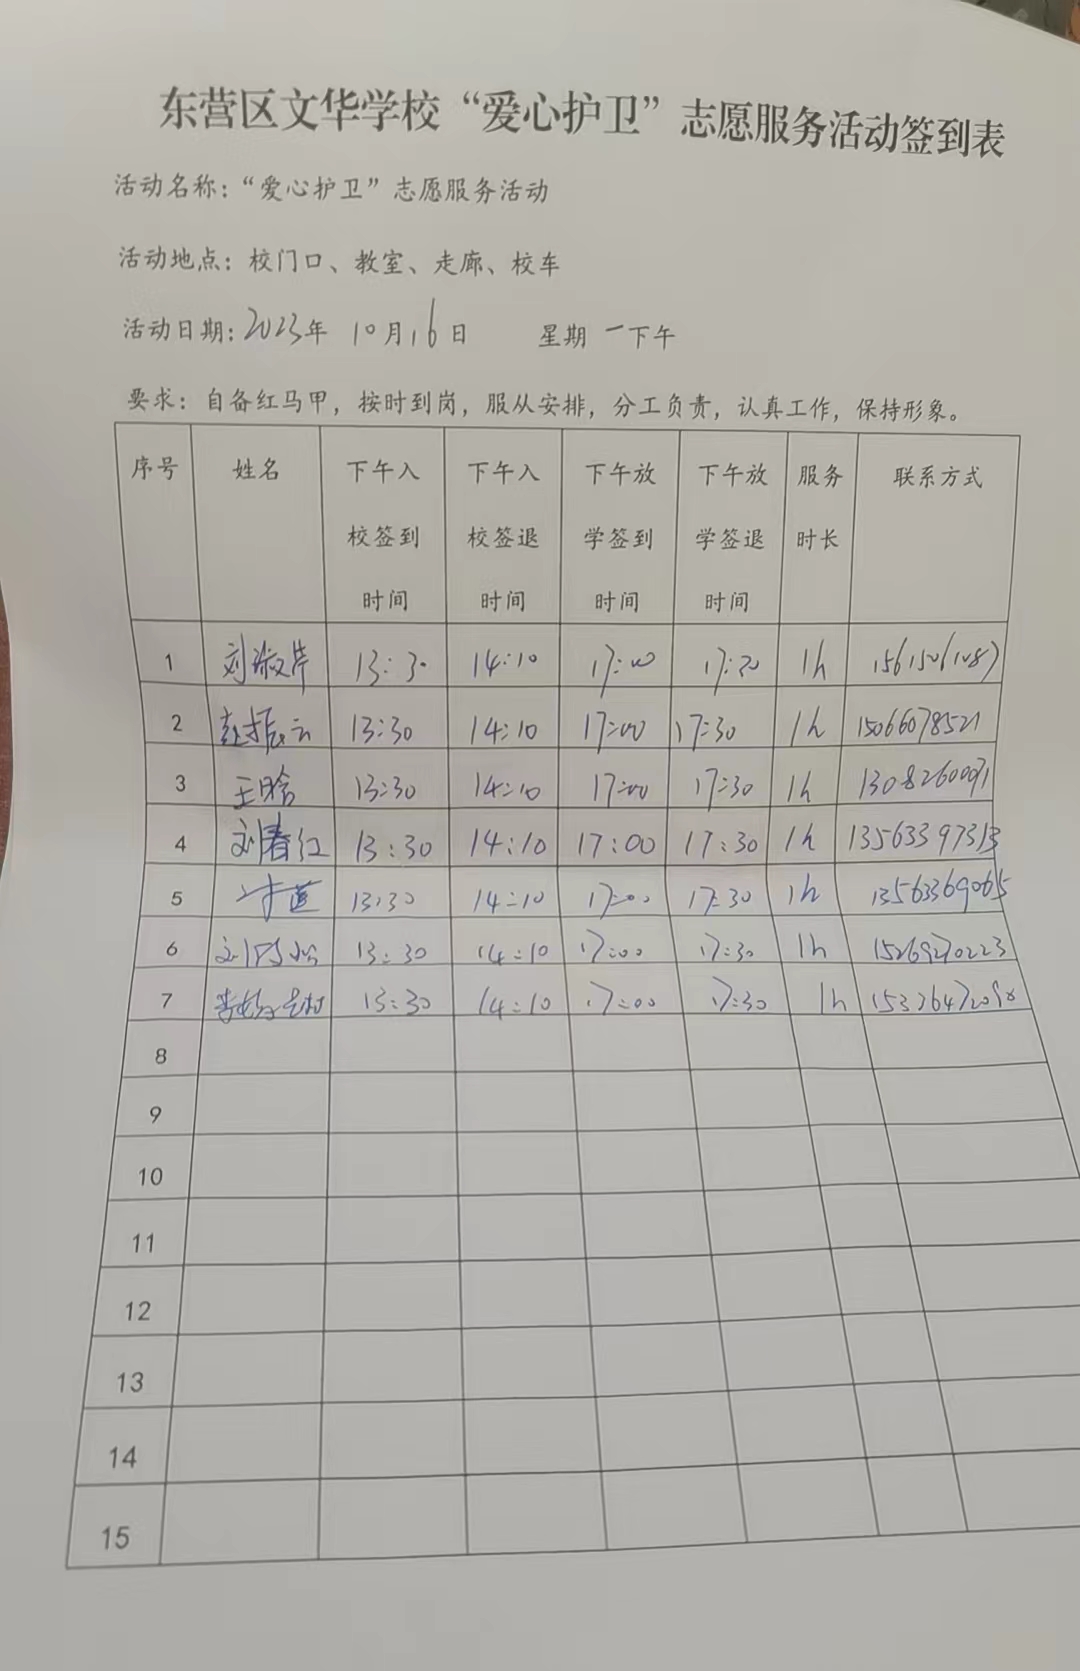 东营区文华学校“爱心护卫”志愿服务活动签到表
活动名称：“爱心护卫”志愿服务活动
活动地点：校门口、教室、走廊、校车
活动日期：2023年 10月16日 星期一下午
要求：自备红马甲，按时到岗，服从安排，分工负责，认真工作，保持形象。
序号 姓名 下午入校签到时间 下午入校签退时间 下午放学签到时间 下午放学签退时间 服务时长 联系方式
1 刘淑芹 13:30 14:10 17:00 17:30 1h
2 赵振云 13:30 14:10 17:00 17:30 1h 15066078521
3 王晗 13:30 14:10 17:00 17:30 1h 13082600091
4 刘春红 13:30 14:10 17:00 17:30 1h 13563397313
5 13:30 14:10 17:00 17:30 1h 13563369065
6 13:30 14:10 17:00 17:30 1h 15269270223
7 13:30 14:10 17:00 17:30 1h
8
9
10
11
12
13
14
15